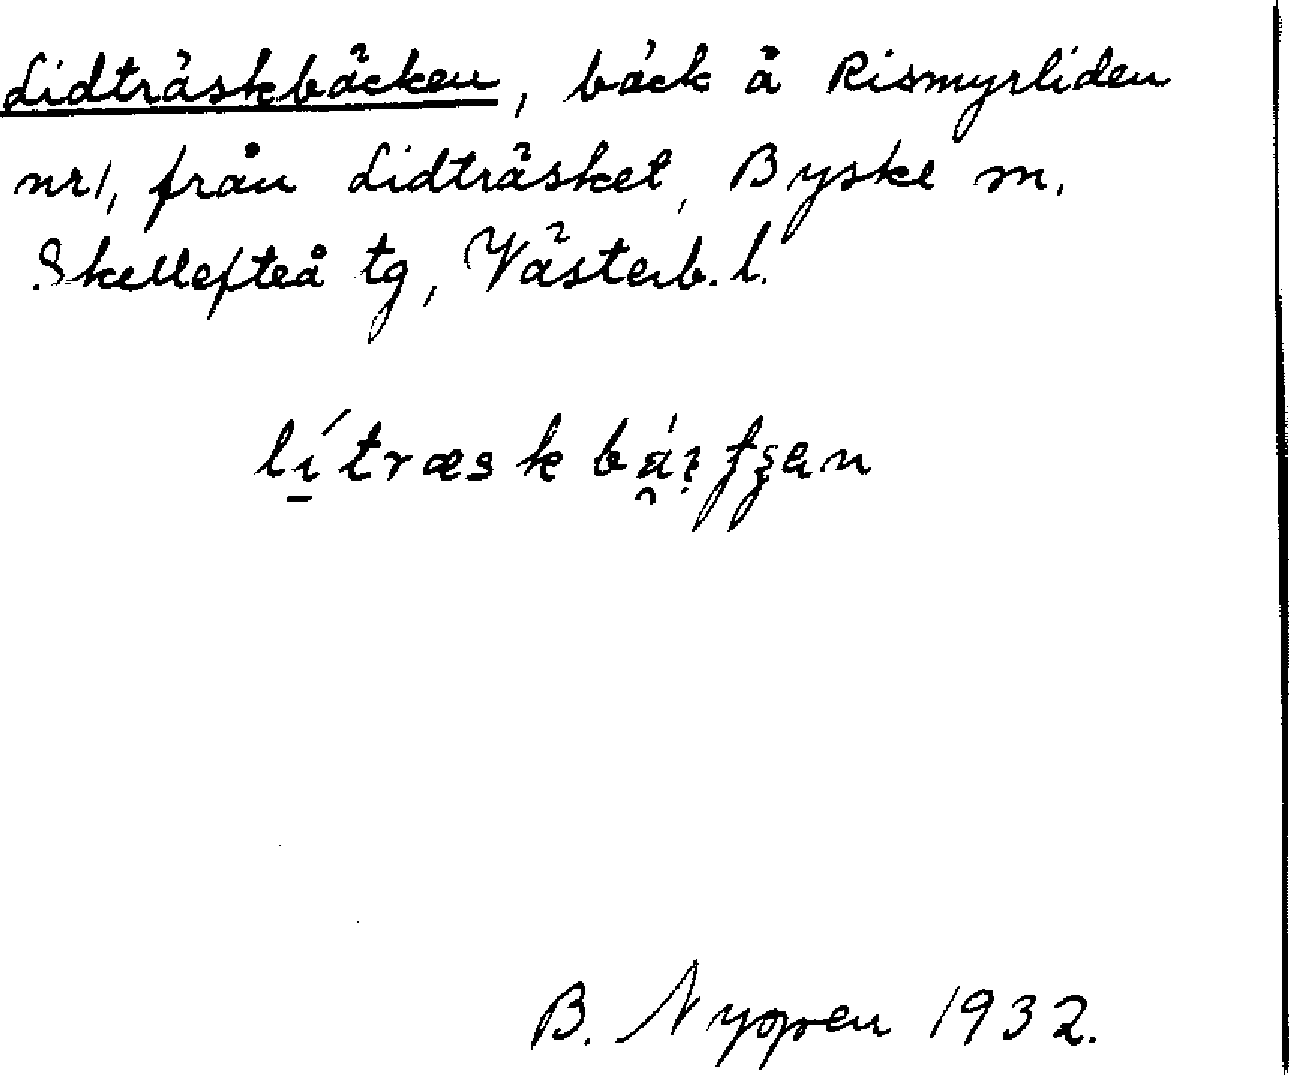 Lidträskbäcken, bäck å Rismyrliden
nr 1, från Lidträsket, Byske m.
Skellefteå tg, Västerb. l.
B. Nyppen 1932.